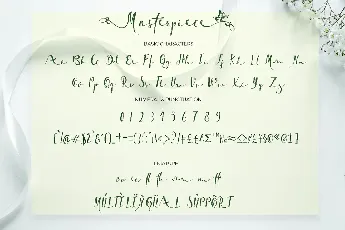 Masterpiece
BASIC CHARACTERS
Aa Bb Cc Dd Ee Ff Gg Hh Ii Jj Kk Ll Mm Nn
Oo Pp Qq Rr Ss Tt Uu Vv Ww Xx Yy Zz
NUMERAL & PUNCTUATION
0 1 2 3 4 5 6 7 8 9
LIGATURE
MULTILINGUAL SUPPORT